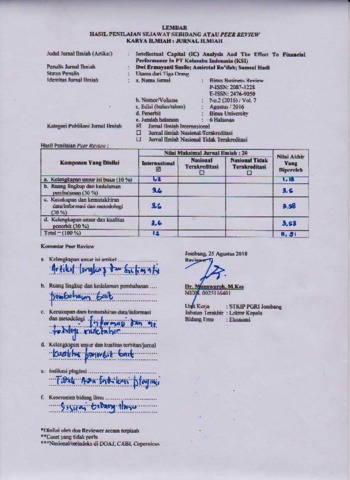 LEMBAR
HASIL PENILAIAN SEJAWAT SEBIDANG ATAU PEER REVIEW
KARYA ILMIAH : JURNAL ILMIAH
Judul Jurnal Ilmiah (Artikel) : Intellectual Capital (IC) Analysis And The Effort To Financial
Performance In PT Kalora Indonesia (KSI)
Penulis Jurnal Ilmiah : Dwi Ermayanti Susilo; Samsul Hadi
Status Penulis : Utama dari Tiga Orang
Identitas Jurnal Ilmiah : a. Nama Jurnal : Binus Business Review
P-ISSN: 2087-1228
E-ISSN: 2476-9050
b. Nomor/Volume : No.2 (2016) : Vol. 7
c. Edisi (bulan/tahun) : Agustus / 2016
d. Penerbit : Binus University
e. Jumlah halaman : 6 Halaman
Kategori Publikasi Jurnal Ilmiah : ☑ Jurnal Ilmiah Internasional
☐ Jurnal Ilmiah Nasional Terakreditasi
☐ Jurnal Ilmiah Nasional Tidak Terakreditasi
Hasil Penilaian Peer Review :
Komponen Yang Dinilai
Nilai Maksimal Jurnal Ilmiah : 20
Internasional ☑
Nasional Terakreditasi ☐
Nasional Tidak Terakreditasi ☐
Nilai Akhir Yang Diperoleh
a. Kelengkapan unsur isi buku (10 %)
b. Ruang lingkup dan kedalaman pembahasan (30 %) 3,6
c. Kecukupan dan kemutakhiran data/informasi dan metodologi (30 %) 3,6
d. Kelengkapan unsur dan kualitas penerbit (30 %) 3,6
Total = (100 %) 12
Komentar Peer Review
a. Kelengkapan unsur isi artikel
Artikel lengkap dan
b. Ruang lingkup dan kedalaman pembahasan
pembahasan baik
c. Kecukupan dan kemutakhiran data/informasi
dan metodologi Informasi dan
d. Kelengkapan unsur dan kualitas terbitan/jurnal
kualitas penerbit baik
e. Indikasi plagiasi
Tidak ada indikasi plagiasi
f. Kesesuaian bidang ilmu
Sesuai bidang ilmu
Jombang, 25 Agustus 2018
Reviewer
Dr. Munawaroh, M.Kes
NIDN. 0025116401
Unit Kerja : STKIP PGRI Jombang
Jabatan Terakhir : Lektor Kepala
Bidang Ilmu : Ekonomi
*Dinilai oleh dua Reviewer secara terpisah
**Coret yang tidak perlu
***Nasional/terindeks di DOAJ, CABI, Copernicus